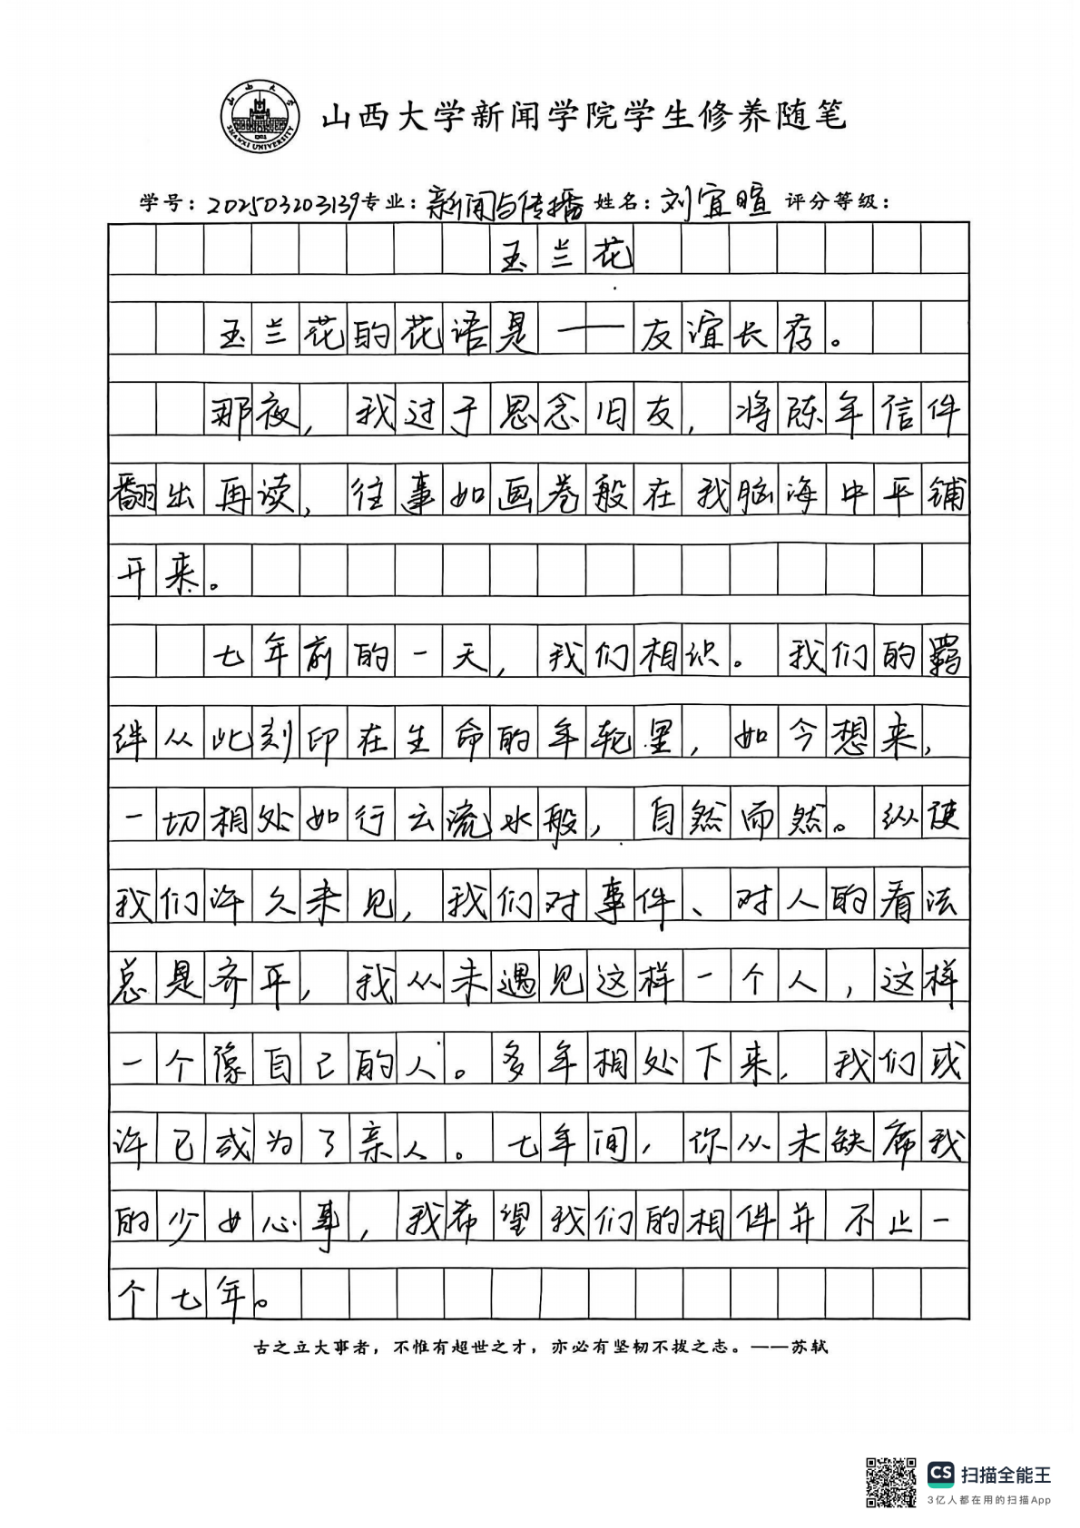 山西大学新闻学院学生修养随笔
学号：202503203139 专业：新闻与传播 姓名：刘宜暄 评分等级：
玉兰花
玉兰花的花语是——友谊长存。
那夜，我过于思念旧友，将陈年信件
翻出再读，往事如画卷般在我脑海中平铺
开来。
七年前的一天，我们相识。我们的羁
绊从此刻印在生命的年轮里，如今想来，
一切相处如行云流水般，自然而然。纵使
我们许久未见，我们对事件、对人的看法
总是齐平，我从未遇见这样一个人，这样
一个像自己的人。多年相处下来，我们或
许已成为了亲人。七年间，你从未缺席我
的少女心事，我希望我们的相伴并不止一
个七年。
古之立大事者，不惟有超世之才，亦必有坚韧不拔之志。——苏轼
CS 扫描全能王
3亿人都在用的扫描App